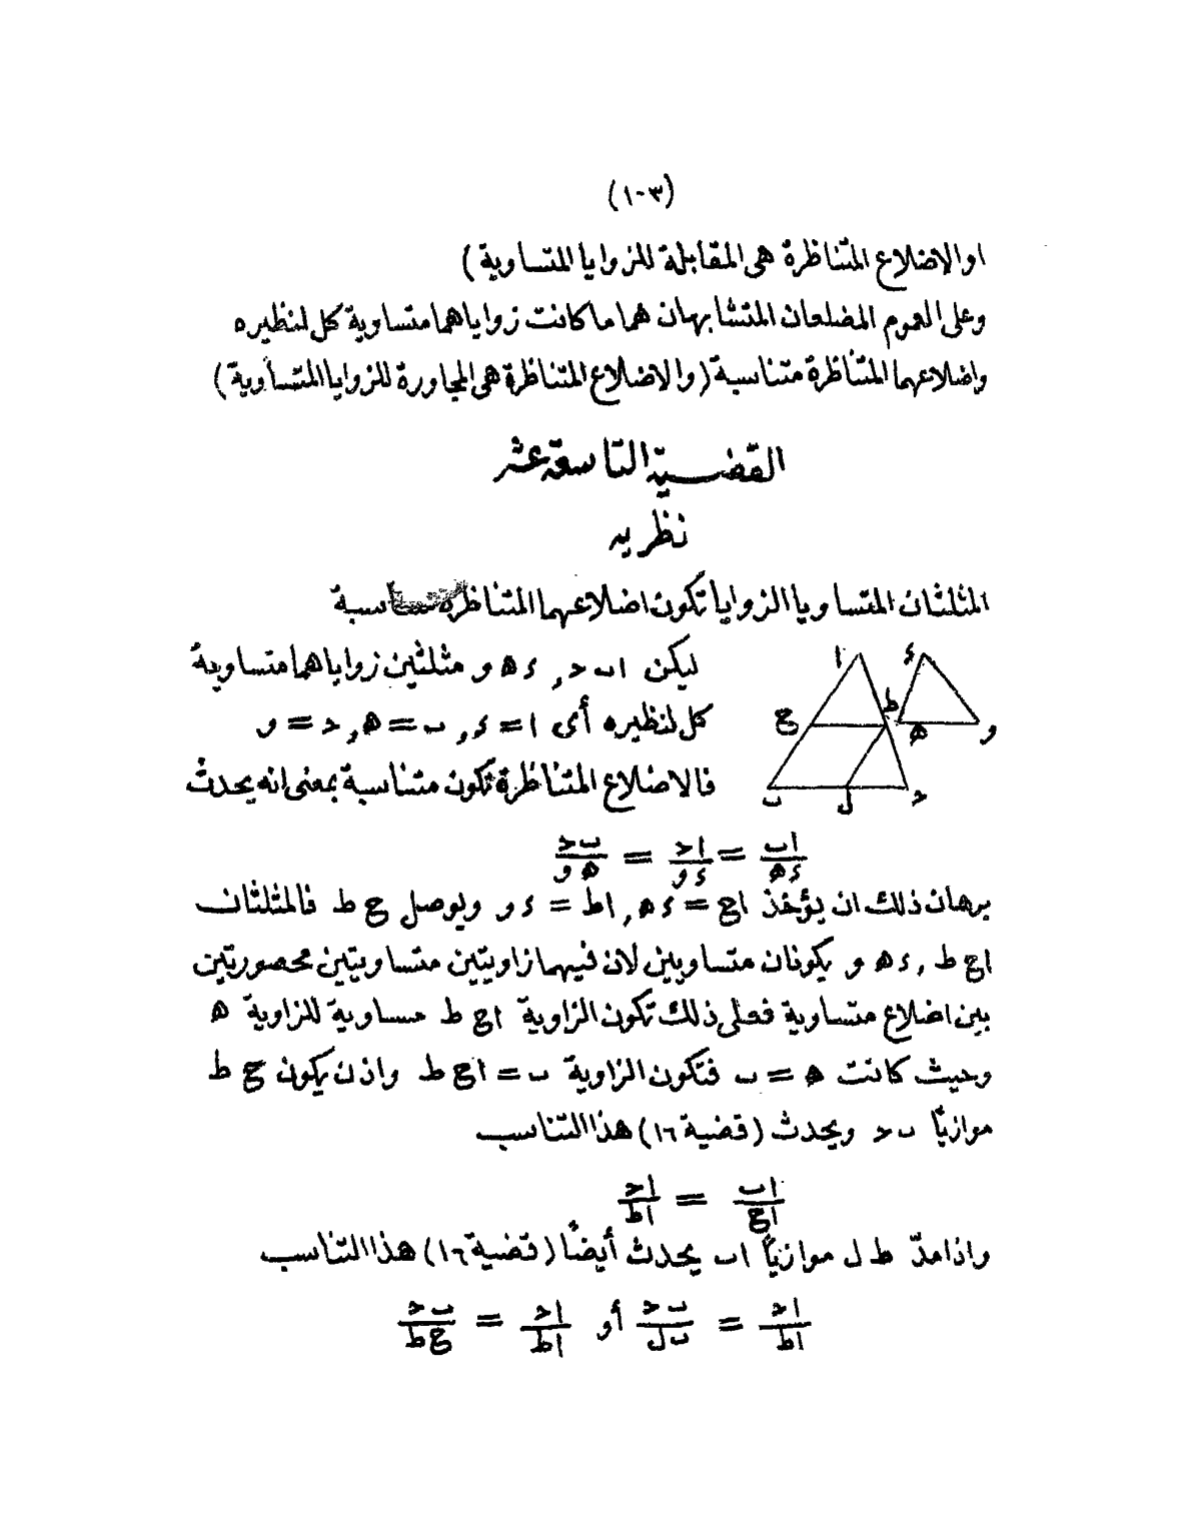 (١٠٣)
اوالاضلاع المتناظرة هى المقابلة للزوايا المتساوية)
وعلى العموم المضلعان المتشابهان هما ما كانت زواياهما متساوية كل لنظيره
واضلاعهما المتناظرة متناسبة (والاضلاع المتناظرة هى المجاورة للزوايا المتساوية)
القضية التاسعة عشر
نظريه
المثلثان المتساويا الزوايا تكون اضلاعهما المتناظرة متناسبة
ا ء
ط
ح ه و
ب ل حـ
ليكن ا ب حـ , ء ه و مثلثين زواياهما متساوية
كل لنظيره أى ا = ء , ب = ه , حـ = و
فالاضلاع المتناظرة تكون متناسبة بمعنى انه يحدث
اب/ءه = احـ/ءو = بحـ/هو
برهان ذلك ان يؤخذ اح = ءه , اط = ءو ويوصل ح ط فالمثلثان
اح ط , ءه و يكونان متساويين لان فيهما زاويتين متساويتين محصورتين
بين اضلاع متساوية فعلى ذلك تكون الزاوية اح ط مساوية للزاوية ه
وحيث كانت ه = ب فتكون الزاوية ب = اح ط واذن يكون ح ط
موازيًا ب حـ ويحدث (قضية ١٦) هذا التناسب
اب/اح = احـ/اط
واذا مدّ ط ل موازيًا اب يحدث أيضًا (قضية ١٦) هذا التناسب
احـ/اط = بحـ/بل أو احـ/اط = بحـ/حط